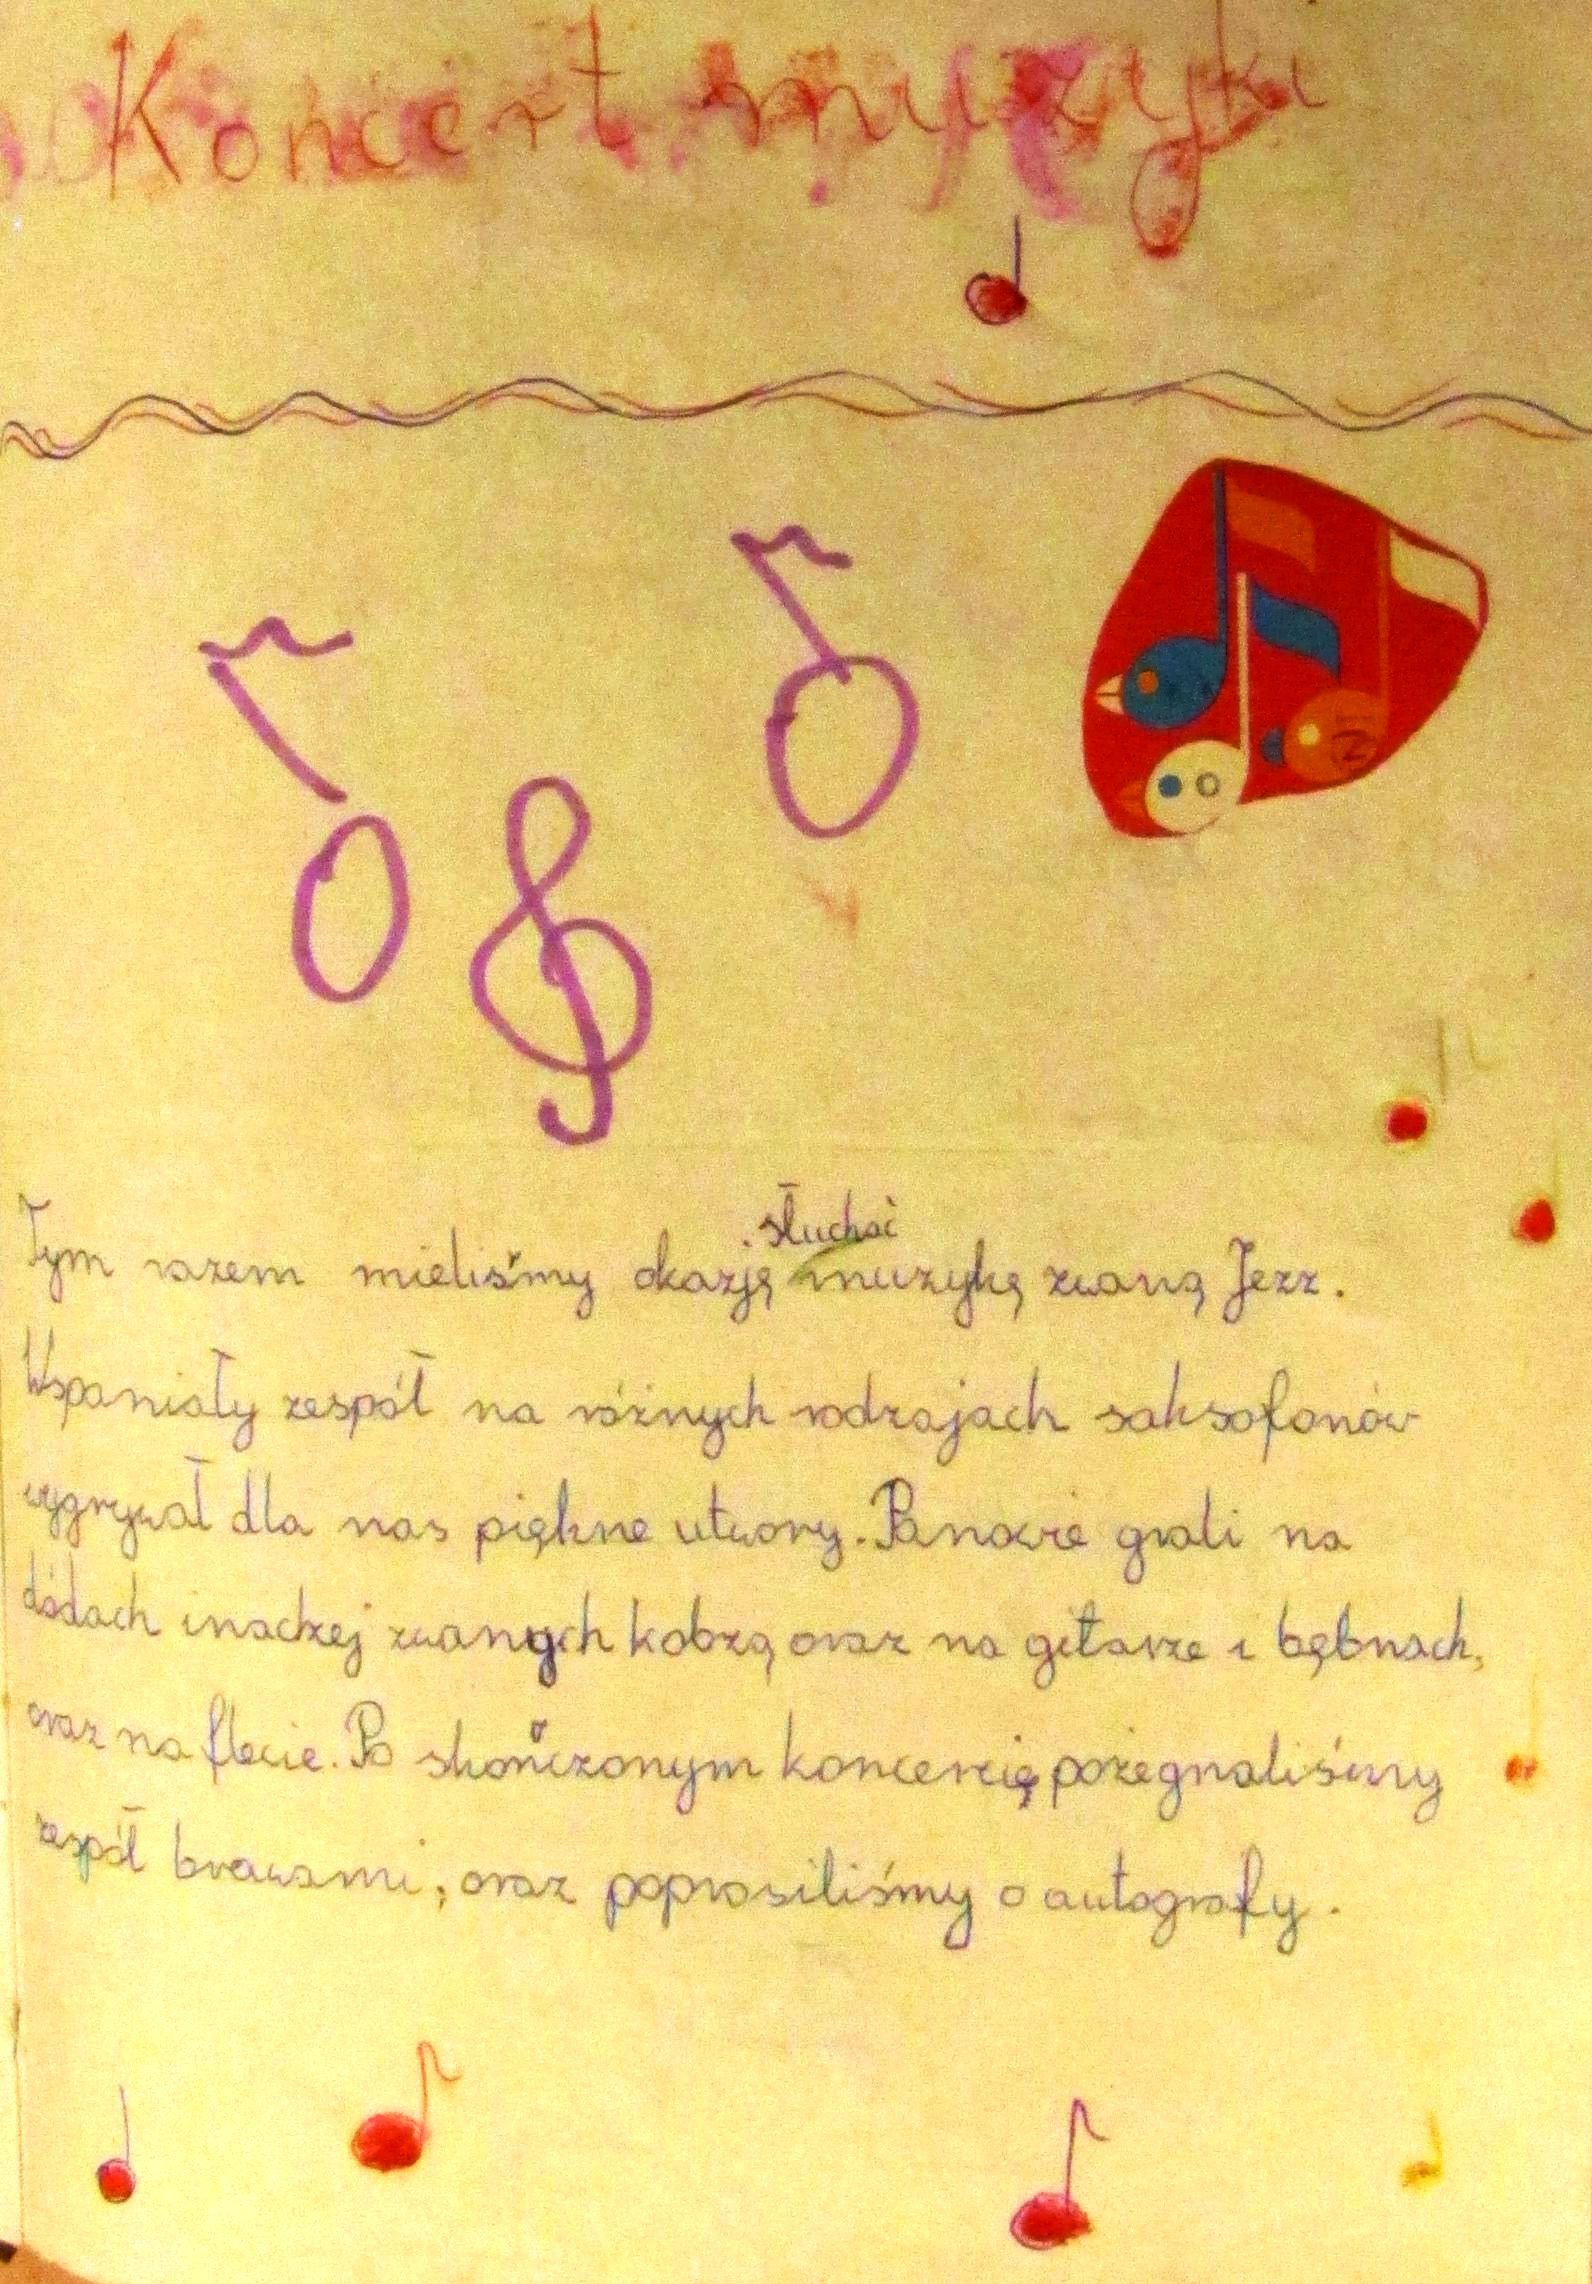 Koncert muzyki
słuchać
Tym razem mieliśmy okazję muzykę zwaną Jezz.
Wspaniały zespół na różnych rodzajach saksofonów
wygrywał dla nas piękne utwory. Panowie grali na
dódach inaczej zwanych kobzą oraz na gitarze i bębnach,
oraz na flecie. Po skończonym koncercię pożegnaliśmy
zespół brawami, oraz poprosiliśmy o autografy.